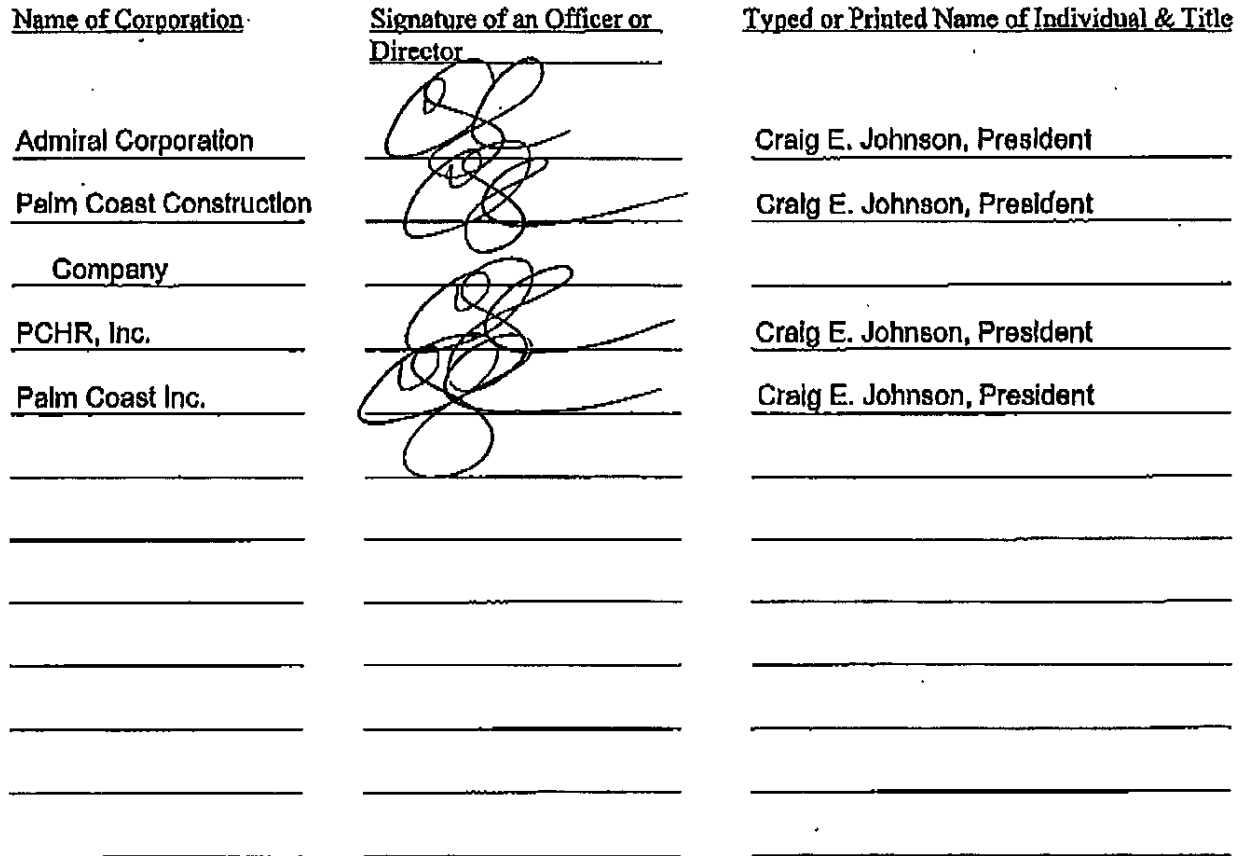 Name of Corporation Signature of an Officer or Director Typed or Printed Name of Individual & Title
Admiral Corporation Craig E. Johnson, President
Palm Coast Construction Craig E. Johnson, President
Company
PCHR, Inc. Craig E. Johnson, President
Palm Coast Inc. Craig E. Johnson, President